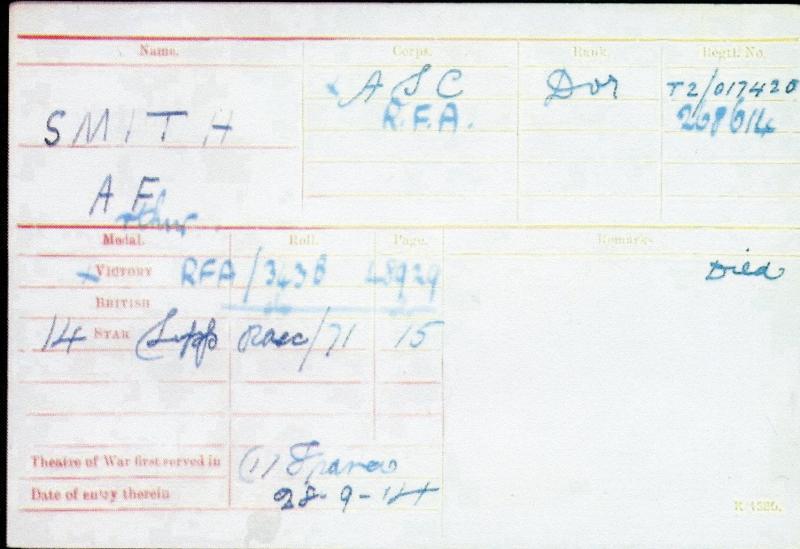 Name. Corps. Rank. Regtl. No.
SMITH × ASC Dvr T2/017425
R.F.A. 268614
A F
rthur.
Medal. Roll. Page. Remarks
× VICTORY RFA/343B 48929 Died
BRITISH
14 STAR (Supp RASC/71 15
Theatre of War first served in (1) France
Date of entry therein 28-9-14
K 1380.